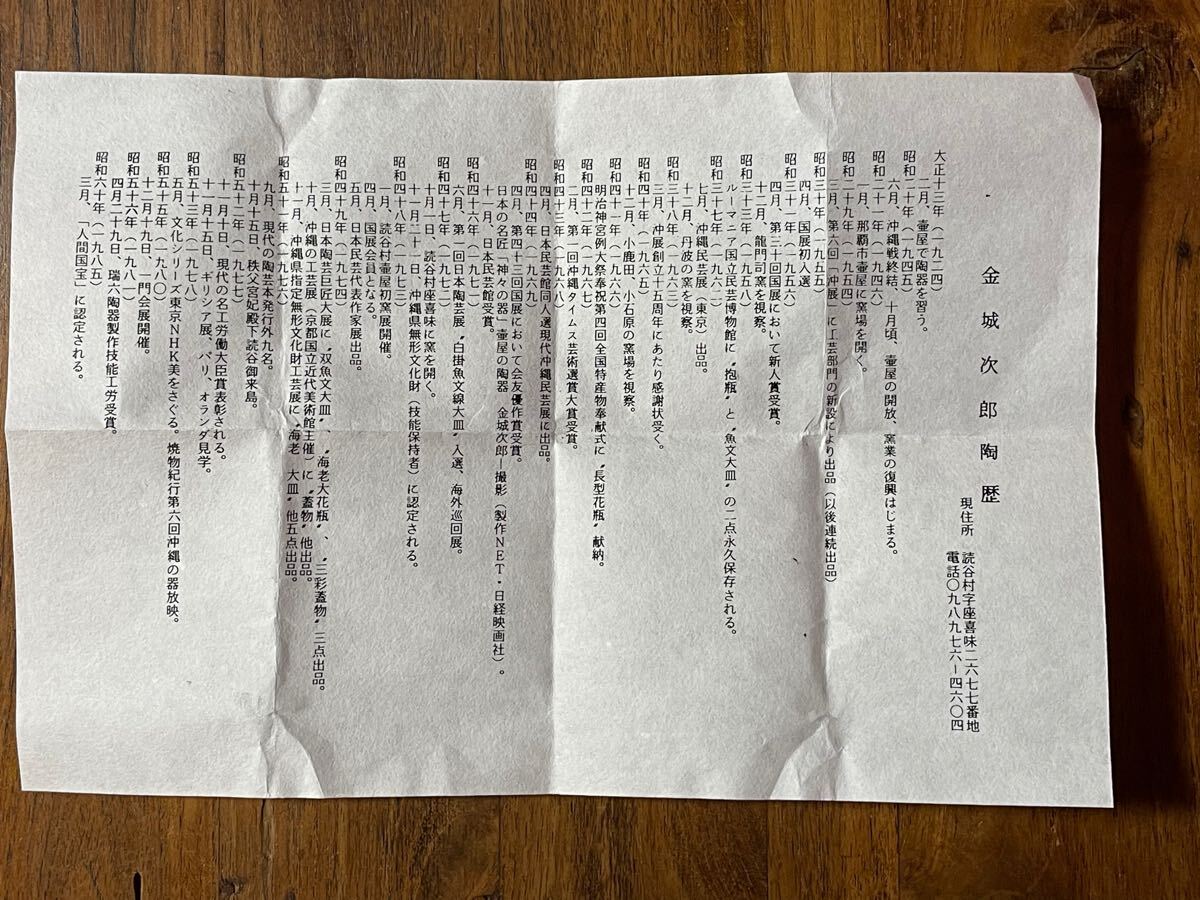 金城次郎陶歴
現住所 読谷村字座喜味二六七七番地
電話〇九八九七六ー四六〇四
大正十三年(一九二四)
二月、壷屋で陶器を習う。
昭和二十年(一九四五)
六月、沖縄戦終結、十月頃、壷屋の開放、窯業の復興はじまる。
昭和二十一年(一九四六)
一月、那覇市壷屋に窯場を開く。
昭和二十九年(一九五四)
三月、第六回「沖展」に工芸部門の新設により出品(以後連続出品)
昭和三十年(一九五五)
四月、国展初入選
昭和三十一年(一九五六)
四月、第三十回国展において新人賞受賞。
十二月、龍門司窯を視察。
昭和三十三年(一九五八)
ルーマニア国立民芸博物館に〝抱瓶〟と〝魚文大皿〟の二点永久保存される。
昭和三十七年(一九六二)
七月、沖縄民芸展(東京)出品。
十二月、丹波の窯を視察。
昭和三十八年(一九六三)
三月、沖展創立十五周年にあたり感謝状受く。
昭和四十年(一九六五)
十二月、小鹿田、小石原の窯場を視察。
昭和四十一年(一九六六)
明治神宮例大祭奉祝第四回全国特産物奉献式に〝長型花瓶〟献納。
昭和四十二年(一九六七)
二月、第一回沖縄タイムス芸術選賞大賞受賞。
昭和四十三年(一九六八)
四月、日本民芸館同人選現代沖縄民芸展に出品。
昭和四十四年(一九六九)
四月、第四十三回国展において会友優作賞受賞。
日本の名匠「神々の器」壷屋の陶器 金城次郎ー撮影(製作NET・日経映画社)。
十一月、日本民芸館受賞。
昭和四十六年(一九七一)
六月、第一回日本陶芸展〝白掛魚文線大皿〟入選、海外巡回展。
昭和四十七年(一九七二)
十月一日、読谷村座喜味に窯を開く。
十一月二十一日、沖縄県無形文化財(技能保持者)に認定される。
昭和四十八年(一九七三)
一月、読谷村壷屋初窯展開催。
四月、国展会員となる。
五月、日本民芸代表作家展出品。
昭和四十九年(一九七四)
三月、日本陶芸巨匠大展に〝双魚文大皿〟、〝海老大花瓶〟、〝三彩蓋物〟三点出品。
十月、沖縄の工芸展(京都国立近代美術館主催)に〝蓋物〟他出品。
十一月、沖縄県指定無形文化財工芸展に〝海老 大皿〟他五点出品。
昭和五十一年(一九七六)
九月、現代の陶芸本発行外九名。
十月十五日、秩父宮妃殿下読谷御来島。
昭和五十二年(一九七七)
十一月十日、現代の名工労働大臣賞表彰される。
十一月十五日、ギリシア展、パリ、オランダ見学。
昭和五十三年(一九七八)
五月、文化シリーズ東京NHK美をさぐる。焼物紀行第六回沖縄の器放映。
昭和五十五年(一九八〇)
十二月十九日、一門会展開催。
昭和五十六年(一九八一)
四月二十九日、瑞六陶器製作技能工労受賞。
昭和六十年(一九八五)
三月、「人間国宝」に認定される。